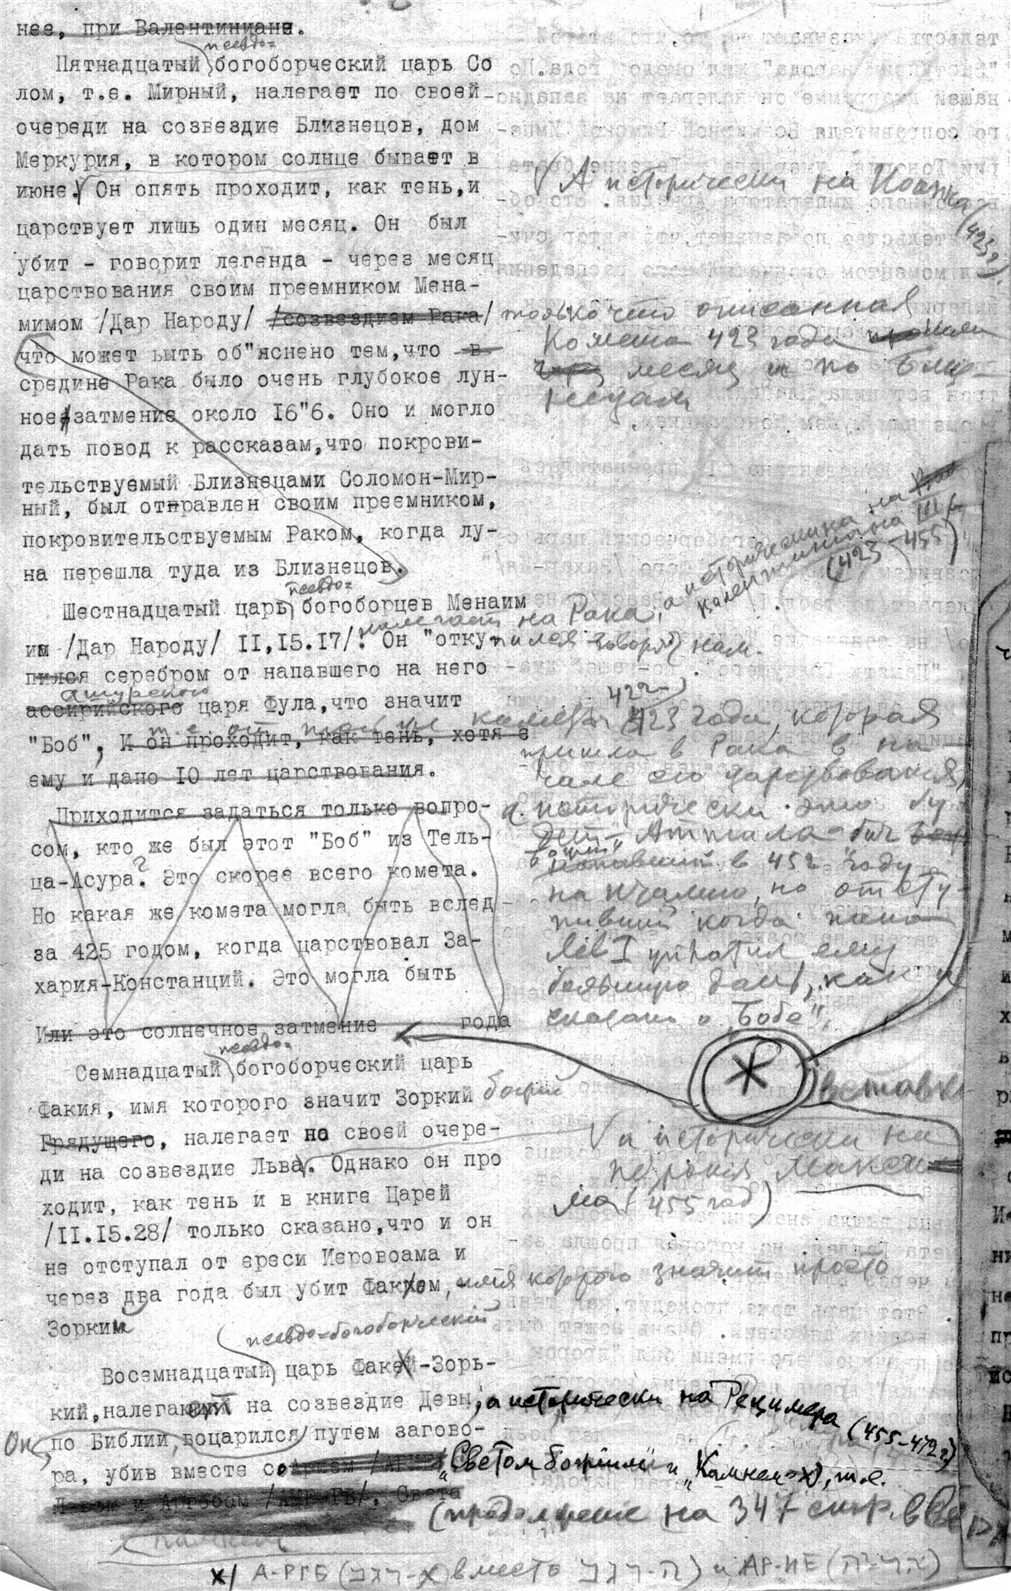 нее, при Валентиниане.
псевдо-
Пятнадцатый богоборческий царь Со
лом, т.е. Мирный, налегает по своей
очереди на созвездие Близнецов, дом
Меркурия, в котором солнце бывает в
июне. Он опять проходит, как тень, и
V А исторически на Иоанна (423г)
царствует лишь один месяц. Он был
убит - говорит легенда - через месяц
царствования своим преемником Мена-
мимом /Дар Народу/ /созвездием Рака/
только что описанная
Комета 423 года прошла
через месяц и по Близ-
нецам
что может быть об"яснено тем,что в
средине Рака было очень глубокое лун-
ное затмение около 16"6. Оно и могло
дать повод к рассказам,что покрови-
тельствуемый Близнецами Соломон-Мир-
ный, был отправлен своим преемником,
покровительствуемым Раком, когда лу-
на перешла туда из Близнецов.
псевдо-
Шестнадцатый царь богоборцев Менаим
налегает на Рака, а исторически на
Валентиниана III
(425-455)
им /Дар Народу/ II,15.17/. Он "отку-
пился говорят нам.
пился серебром от напавшего на него
ашурского
ассирийского царя Фула,что значит
"Боб", И он проходит, как тень, хотя в
т.е. от кометы 422-423 года, которая
пришла в Рака в на-
чале его царствования,
ему и дано 10 лет царствования.
Приходится задаться только вопро-
сом, кто же был этот "Боб" из Тель-
ца-Асура? Это скорее всего комета.
Но какая же комета могла быть вслед
за 425 годом, когда царствовал За-
хария-Констанций. Это могла быть
Или это солнечное затмение года
а исторически это бу-
дет Аттила бич
божий"
напавший в 452 году
на Италию, но отсту-
пивший когда папа
Лев I уплатил ему
большую дань, как и
сказано о "Бобе".
* вставка
псевдо-
Семнадцатый богоборческий царь
Факия, имя которого значит Зоркий божий
Грядущего, налегает по своей очере-
ди на созвездие Льва. Однако он про
V а исторически на
Петрония Макси-
ма (455 год)
ходит, как тень и в книге Царей
/II.15.28/ только сказано,что и он
не отступал от ереси Иеровоама и
через два года был убит Факеем, имя которого значит просто
Зорким
псевдо-богоборческий
Восемнадцатый царь Факей-Зорь-
кий,налегает на созвездие Девы, а исторически на Рецимера (455-472г)
Он по Библии воцарился путем загово-
ра, убив вместе со "Светом божиим" и "Камнем" x), т.е.
(продолжение на 347 стр.
x/ А-РГБ (ארגב) вместо